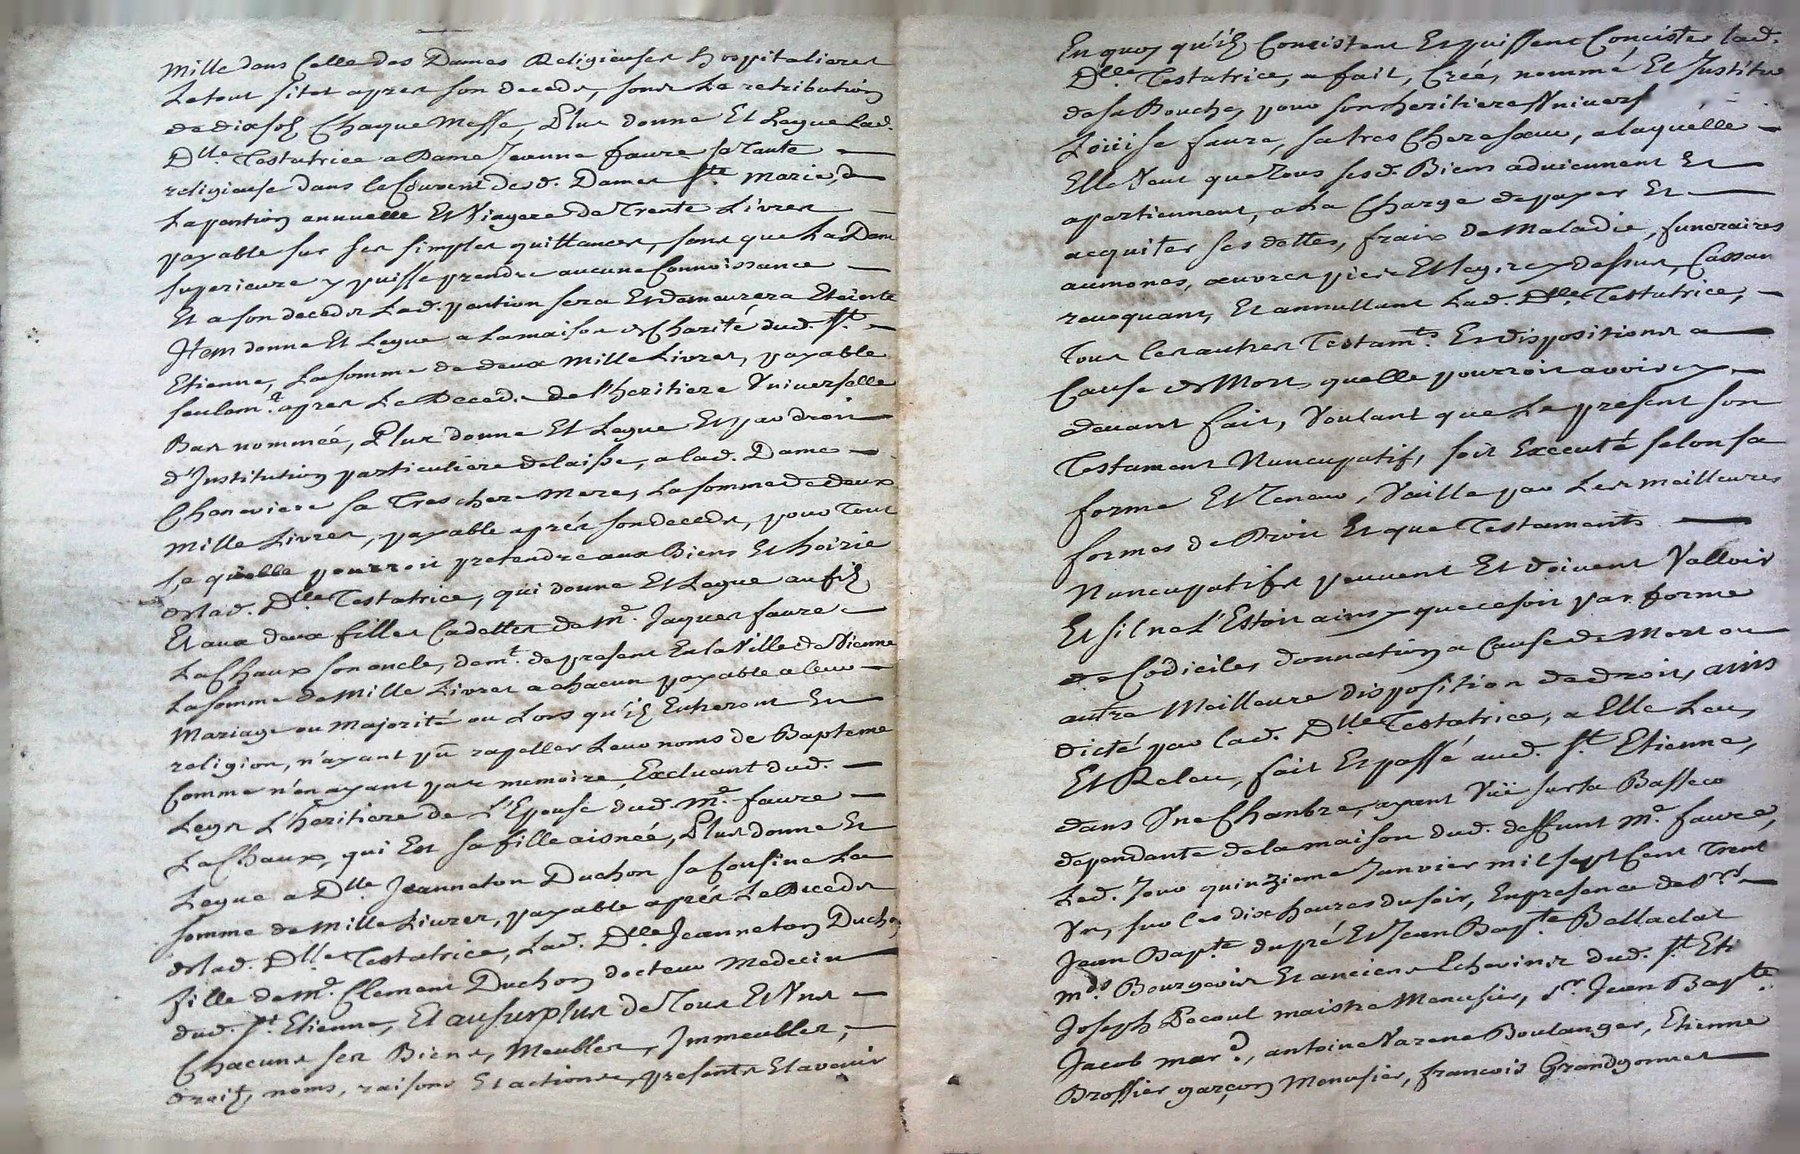 mille dans Celle des Dames Religieuses hospitalieres
Le tout sitot apres son deceds, sous La retribution
de dix sols Chaque Messe, Plus donne Et Legue Lad.
Dlle Testatrice a Dame Jeanne faure sa Tante
religieuse dans le Couvent desd. Dames Ste Marie, de
La pention annuelle Et Viagere de Trente Livres
payable sur ses simples quittances, sans que La Dame
superieure y puisse prendre aucune Connoissance
Et a son deceds Lad. pantion sera Et demeurera Eteinte
Item donne Et Legue a La maison de Charité dud. St
Etienne, La somme de deux Mille Livres, payable
seulemt apres Le Deceds de l'heritiere Vniverselle
Bas nommée, Plus donne Et Legue Et par droit
d'Institution particuliere delaisse, a lad. Dame
Chaneviere sa Tres chere Mere, La somme de deux
mille Livres, payable aprés son deceds, pour Tout
se qu'elle pourroit pretendre aux Biens Et hoirie
de lad. Dlle Testatrice, qui donne Et Legue au fils
Et aux deux filles Cadettes de Mr. Jaques faure
La Chaux son oncle, demt. de present En la Ville de Vienne
La somme de Mille Livres a chacun payable a leur
Mariage ou Majorité ou Lors qu'ils Entreront En
religion, n'ayant pû rapeller Leur noms de Bapteme
Comme n'en ayant pas memoire, Excluant dud.
Legs L'heritiere de L'Epouse dud. Mr. faure
La Chaux, qui Est sa fille aisnée, Plus donne Et
Legue a Dlle Jeanneton Duchon sa Cousine La
somme de Mille Livres, payable aprés Le Deceds
de lad. Dlle Testatrice, Lad. Dlle Jeanneton Duchon
fille de Mr. Clement Duchon docteur Medecin
dud. St Etienne, Et au surplus de Tous Et Vns
Chacuns ses Biens, Meubles, Immeubles,
droits, noms, raisons Et actions, presents Et avenir
En quoy qu'ils Concistent Et puissent Concister lad.
Dlle Testatrice, a fait, Creé, nommé Et Institué
de sa Bouche, pour son heritiere Vnivers
Loüise faure, sa tres Chere soeur, a laquelle
Elle Veut que Tous sesd. Biens adviennent Et
apartiennent, a La Charge de payer Et
acquiter ses dettes, fraix de Maladie, funeraires
aumones, oeuvres pies Et legs cy dessus, Cassant
revoquant, Et annullant Lad. Dlle Testatrice,
Tous les autres Testamts. Et dispositions a
Cause de Mort, quelle pourroit avoir cy
devant fait, Voulant que Le present son
Testament Nuncupatif, soit Executé selon sa
forme Et Teneur, Vaille par Les meilleures
formes de Droit Et que Testaments
Nuncupatifs peuvent Et doivent Valloir
Et sil ne L'Estoit ainsy que ce soit par forme
de Codiciles donnation a Cause de Mort ou
autre Meilleure disposition de droit, ains
dicté par lad. Dlle Testatrice, a Elle Leu,
Et Releu, fait Et passé aud. St Etienne,
dans Vne Chambre, ayant Vüe sur la Basseco
dependante de la maison dud. deffunt Mr. faure,
Led. Jour quinzieme Janvier mil sept Cent Trent
Vn, sur les dix heures du soir, En presence de Srs
Jean Bapte dupré Et Jean Bapte Balladat
mds. Bourgeois Et anciens Echevins dud. St Eti
Joseph Decoul maistre Menusier, Sr Jean Bapte
Jacob mard., antoine Varene Boulanger, Etienne
Brossier garçon Menusier, francois Grandgonnet